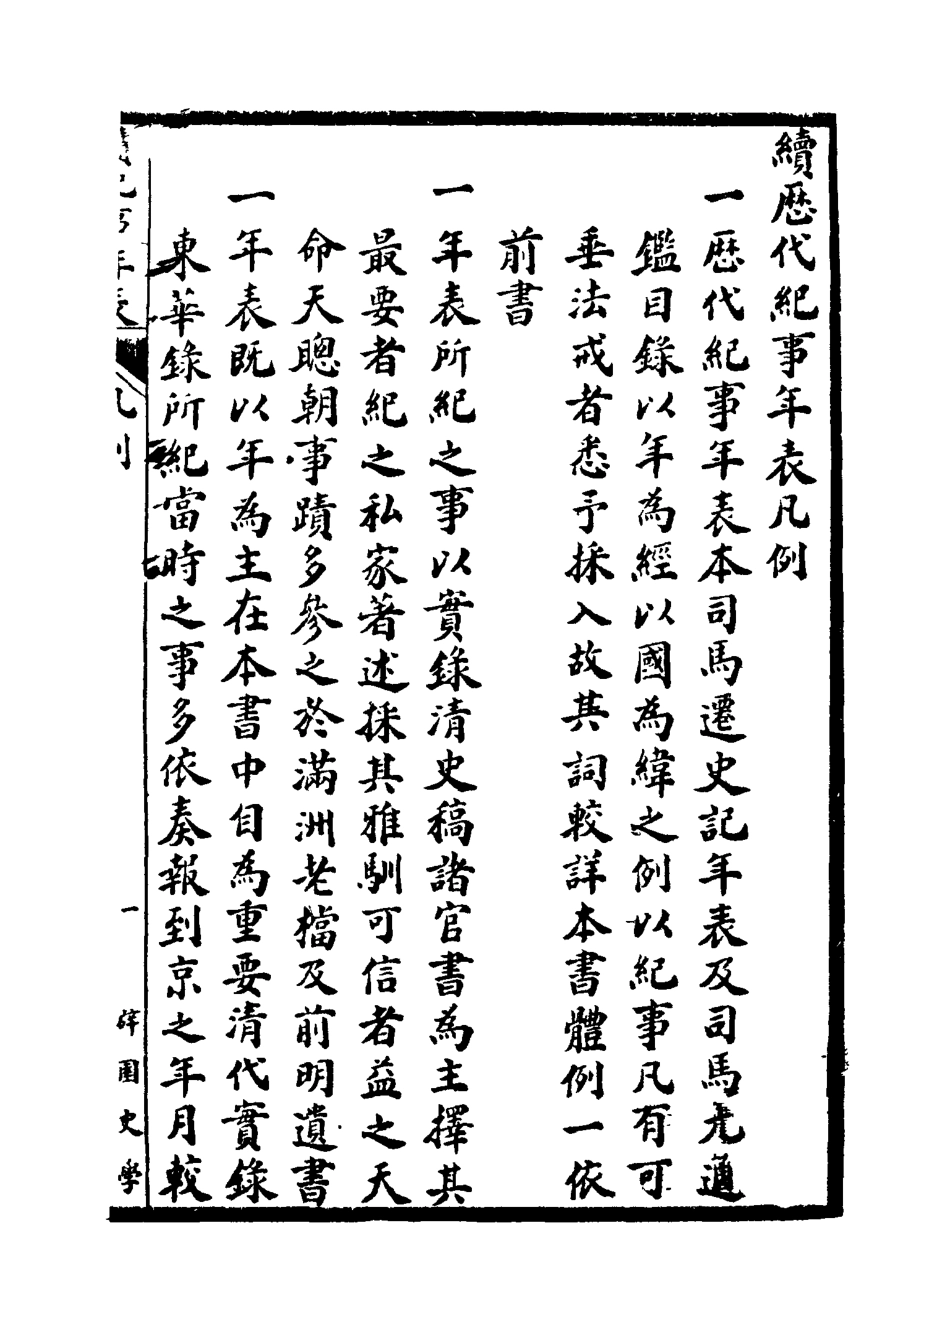 續歷代紀事年表凡例
一歷代紀事年表本司馬遷史記年表及司馬光通
鑑目錄以年為經以國為緯之例以紀事凡有可
垂法戒者悉予採入故其詞較詳本書體例一依
前書
一年表所紀之事以實錄清史稿諸官書為主擇其
最要者紀之私家著述採其雅馴可信者益之天
命天聰朝事蹟多參之於滿洲老檔及前明遺書
一年表既以年為主在本書中自為重要清代實錄
東華錄所紀當時之事多依奏報到京之年月較
紀事年表 凡例 一 園史學